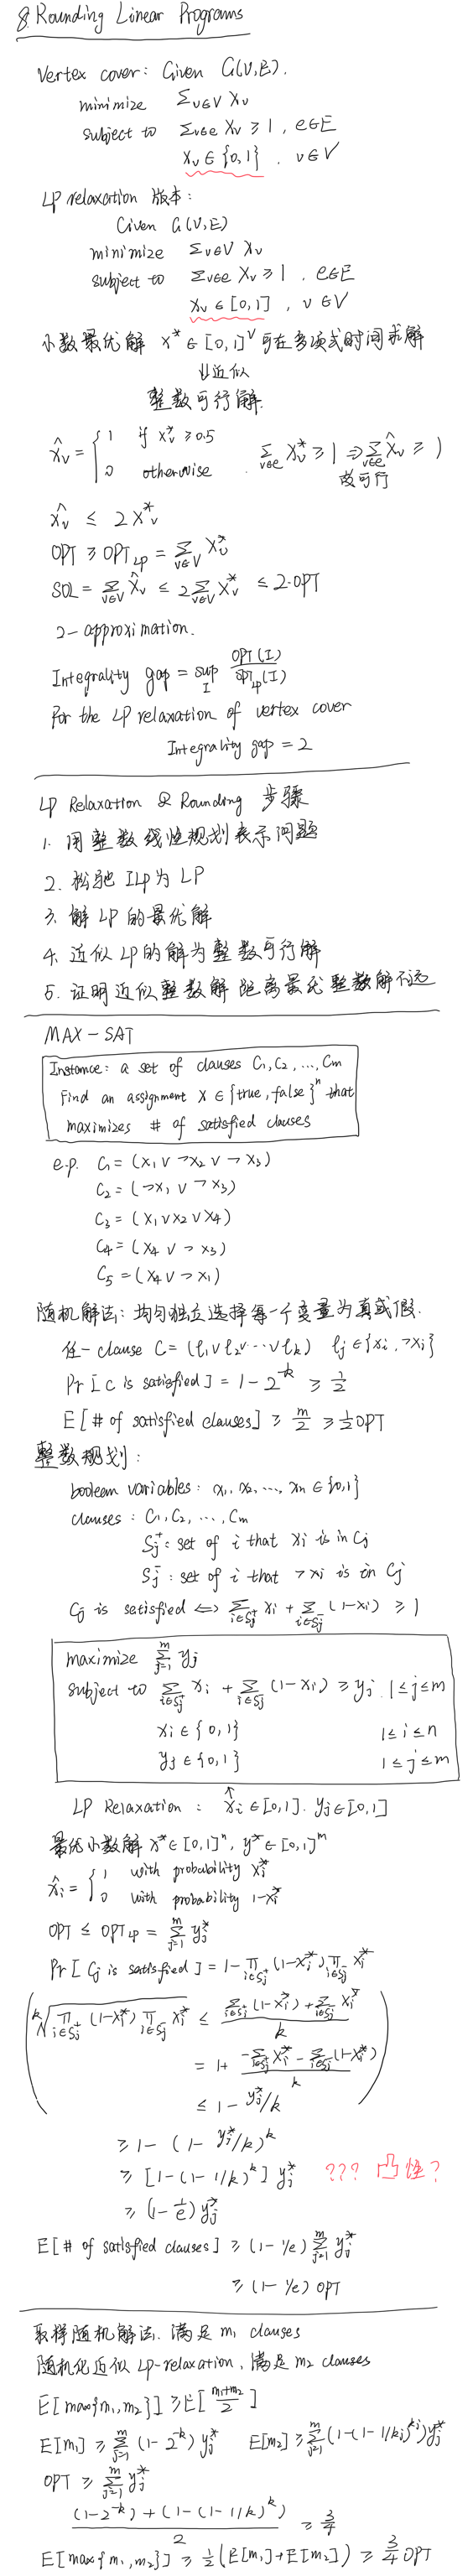 8. Rounding Linear Programs
Vertex cover: Given G(V,E).
minimize Σ_{v∈V} x_v
subject to Σ_{v∈e} x_v ≥ 1, e∈E
x_v ∈ {0,1}, v∈V
LP relaxation 版本:
Given G(V,E)
minimize Σ_{v∈V} x_v
subject to Σ_{v∈e} x_v ≥ 1, e∈E
x_v ∈ [0,1], v∈V
小数最优解 x* ∈ [0,1]^V 可在多项式时间求解
⇓近似
整数可行解.
x̂_v = { 1 if x_v* ≥ 0.5
0 otherwise . Σ_{v∈e} x_v* ≥ 1 ⇒ Σ_{v∈e} x̂_v ≥ 1
故可行
x̂_v ≤ 2x_v*
OPT ≥ OPT_LP = Σ_{v∈V} x_v*
SOL = Σ_{v∈V} x̂_v ≤ 2Σ_{v∈V} x_v* ≤ 2·OPT
2-approximation.
Integrality gap = sup_I OPT(I)/OPT_LP(I)
For the LP relaxation of vertex cover
Integrality gap = 2
LP Relaxation & Rounding 步骤
1. 用整数线性规划表示问题
2. 松驰 ILP为 LP
3. 解 LP 的最优解
4. 近似 LP的解为整数可行解
5. 证明近似整数解距离最优整数解不远
MAX-SAT
Instance: a set of clauses C1, C2, ..., Cm
Find an assignment x ∈ {true, false}^n that
maximizes # of satisfied clauses
e.p. C1 = (x1 ∨ ¬x2 ∨ ¬x3)
C2 = (¬x1 ∨ ¬x3)
C3 = (x1 ∨ x2 ∨ x4)
C4 = (x4 ∨ ¬x3)
C5 = (x4 ∨ ¬x1)
随机解法: 均匀独立选择每一个变量为真或假.
任一 clause C = (ℓ1 ∨ ℓ2 ∨ ... ∨ ℓk) ℓj ∈ {xi, ¬xi}
Pr[C is satisfied] = 1 - 2^{-k} ≥ 1/2
E[# of satisfied clauses] ≥ m/2 ≥ 1/2 OPT
整数规划:
boolean variables: x1, x2, ..., xn ∈ {0,1}
clauses: C1, C2, ..., Cm
S_j^+: set of i that xi is in Cj
S_j^-: set of i that ¬xi is in Cj
Cj is satisfied ⟺ Σ_{i∈S_j^+} xi + Σ_{i∈S_j^-} (1-xi) ≥ 1
maximize Σ_{j=1}^m yj
subject to Σ_{i∈S_j^+} xi + Σ_{i∈S_j^-} (1-xi) ≥ yj. 1≤j≤m
xi ∈ {0,1} 1≤i≤n
yj ∈ {0,1} 1≤j≤m
↑
LP Relaxation: xi ∈ [0,1]. yj ∈ [0,1]
最优小数解 x* ∈ [0,1]^n, y* ∈ [0,1]^m
x̂i = { 1 with probability xi*
0 with probability 1-xi*
OPT ≤ OPT_LP = Σ_{j=1}^m yj*
Pr[Cj is satisfied] = 1 - Π_{i∈S_j^+} (1-xi*) Π_{i∈S_j^-} xi*
( ᵏ√(Π_{i∈S_j^+} (1-xi*) Π_{i∈S_j^-} xi*) ≤ (Σ_{i∈S_j^+} (1-xi*) + Σ_{i∈S_j^-} xi*)/k
= 1 + (-Σ_{i∈S_j^+} xi* - Σ_{i∈S_j^-} (1-xi*))/k
≤ 1 - yj*/k )
≥ 1 - (1 - yj*/k)^k
≥ [1-(1-1/k)^k] yj* ??? 凸性?
≥ (1-1/e) yj*
E[# of satisfied clauses] ≥ (1-1/e) Σ_{j=1}^m yj*
≥ (1-1/e) OPT
取样随机解法. 满足 m1 clauses
随机化近似 LP-relaxation, 满足 m2 clauses
E[max{m1,m2}] ≥ E[(m1+m2)/2]
E[m1] ≥ Σ_{j=1}^m (1-2^{-k}) yj* E[m2] ≥ Σ_{j=1}^m (1-(1-1/kj)^{kj}) yj*
OPT ≥ Σ_{j=1}^m yj*
((1-2^{-k}) + (1-(1-1/k)^k))/2 ≥ 3/4
E[max{m1,m2}] ≥ 1/2(E[m1]+E[m2]) ≥ 3/4 OPT